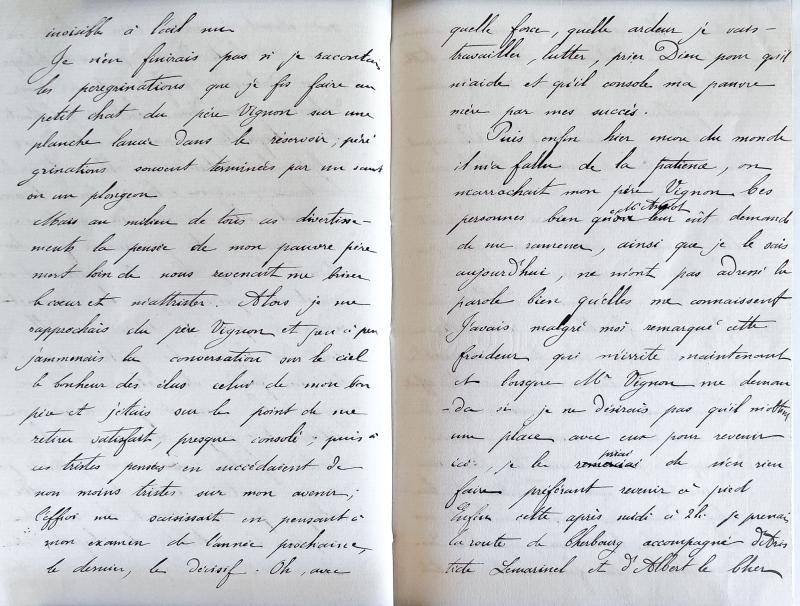 invisible à l'œil nu
Je n'en finirais pas si je racontais
les peregrinations que je fis faire au
petit chat du père Vignon sur une
planche lancée dans le réservoir ; péré
grinations souvent terminées par un saut
ou un plongeon
Mais au milieu de tous ces divertisse-
ments la pensée de mon pauvre père
mort loin de nous revenait me briser
le cœur et m'attrister. Alors je me
rapprochais du père Vignon et peu à peu
j'ammenais la conversation sur le ciel
le bonheur des élus celui de mon bon
père et j'étais sur le point de me
retirer satisfait, presque consolé ; puis à
ces tristes pensées en succédaient de
non moins tristes sur mon avenir ;
l'effroi me saisissait en pensant à
mon examen de l'année prochaine,
le dernier, le décisif. Oh, avec
quelle force, quelle ardeur je vais
travailler, lutter, prier Dieu pour qu'il
m'aide et qu'il console ma pauvre
mère par mes succès.
Puis enfin hier encore du monde
il m'a fallu de la patience, on
m'arrachait mon père Vignon Ces
personnes bien que leur eût demandé
de me ramener, ainsi que je le sais
aujourd'hui, ne m'ont pas adressé la
parole bien qu'elles me connaissent
J'avais malgré moi remarqué cette
froideur qui m'irrite maintenant
et lorsque Mr Vignon me deman
-da si je ne désirais pas qu'il m'obtînt
une place avec eux pour revenir
ici, je le priai de n'en rien
faire préférant revenir à pied
Enfin cette après midi à 2h. je prenais
la route de Cherbourg accompagné d'Aris
tide Lemarinel et d'Albert le Cher